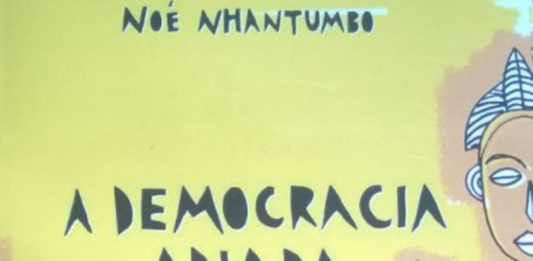 NOÉ NHANTUMBO
A DEMOCRACIA